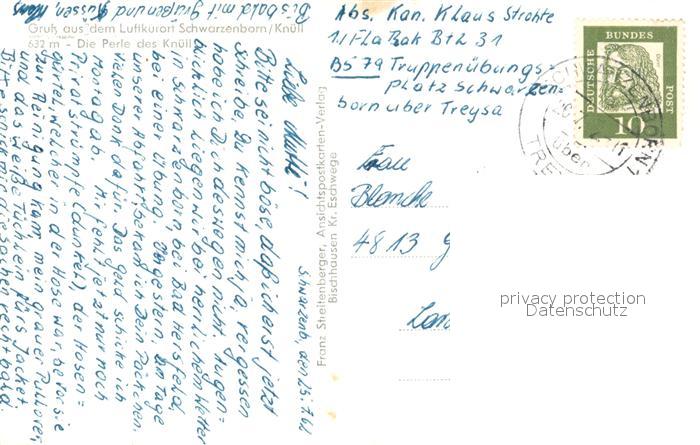 Bis bald mit Grüßen und Küssen, Klaus
Gruß aus dem Luftkurort Schwarzenborn/Knüll
632 m - Die Perle des Knüll
Schwarzenb, den 25.7.62
Liebe Mutti!
Bitte sei nicht böse, daß ich erst jetzt
schreibe. Du kennst mich ja, vergessen
habe ich Dich deswegen nicht. Augen-
blicklich liegen wir bei herrlichem Wetter
in Schwarzenborn bei Bad Hersfeld,
bei einer Übung. Vorgestern, am Tage
unserer Abfahrt, bekam ich Dein Päckchen.
Vielen Dank dafür. Das Geld schicke ich
Montag ab. Mir fehlt jetzt nur noch
Paar Strümpfe (dunkel), der Hosen-
gürtel, welcher in der Hose war, bevor sie
zur Reinigung kam, mein grauer Pullover,
und das weiße Tüchlein fürs Jacket.
Bitte schick mir die Sachen recht bald.
Franz Streitenberger, Ansichtspostkarten-Verlag
Bischhausen Kr. Eschwege
Abs. Kan. Klaus Strohte
1./FlaRak Btl. 31
B579 Truppenübungs-
platz Schwarzen-
born über Treysa
DEUTSCHE BUNDESPOST
10
über
Frau
Blanche
4813 G
Lan
privacy protection
Datenschutz